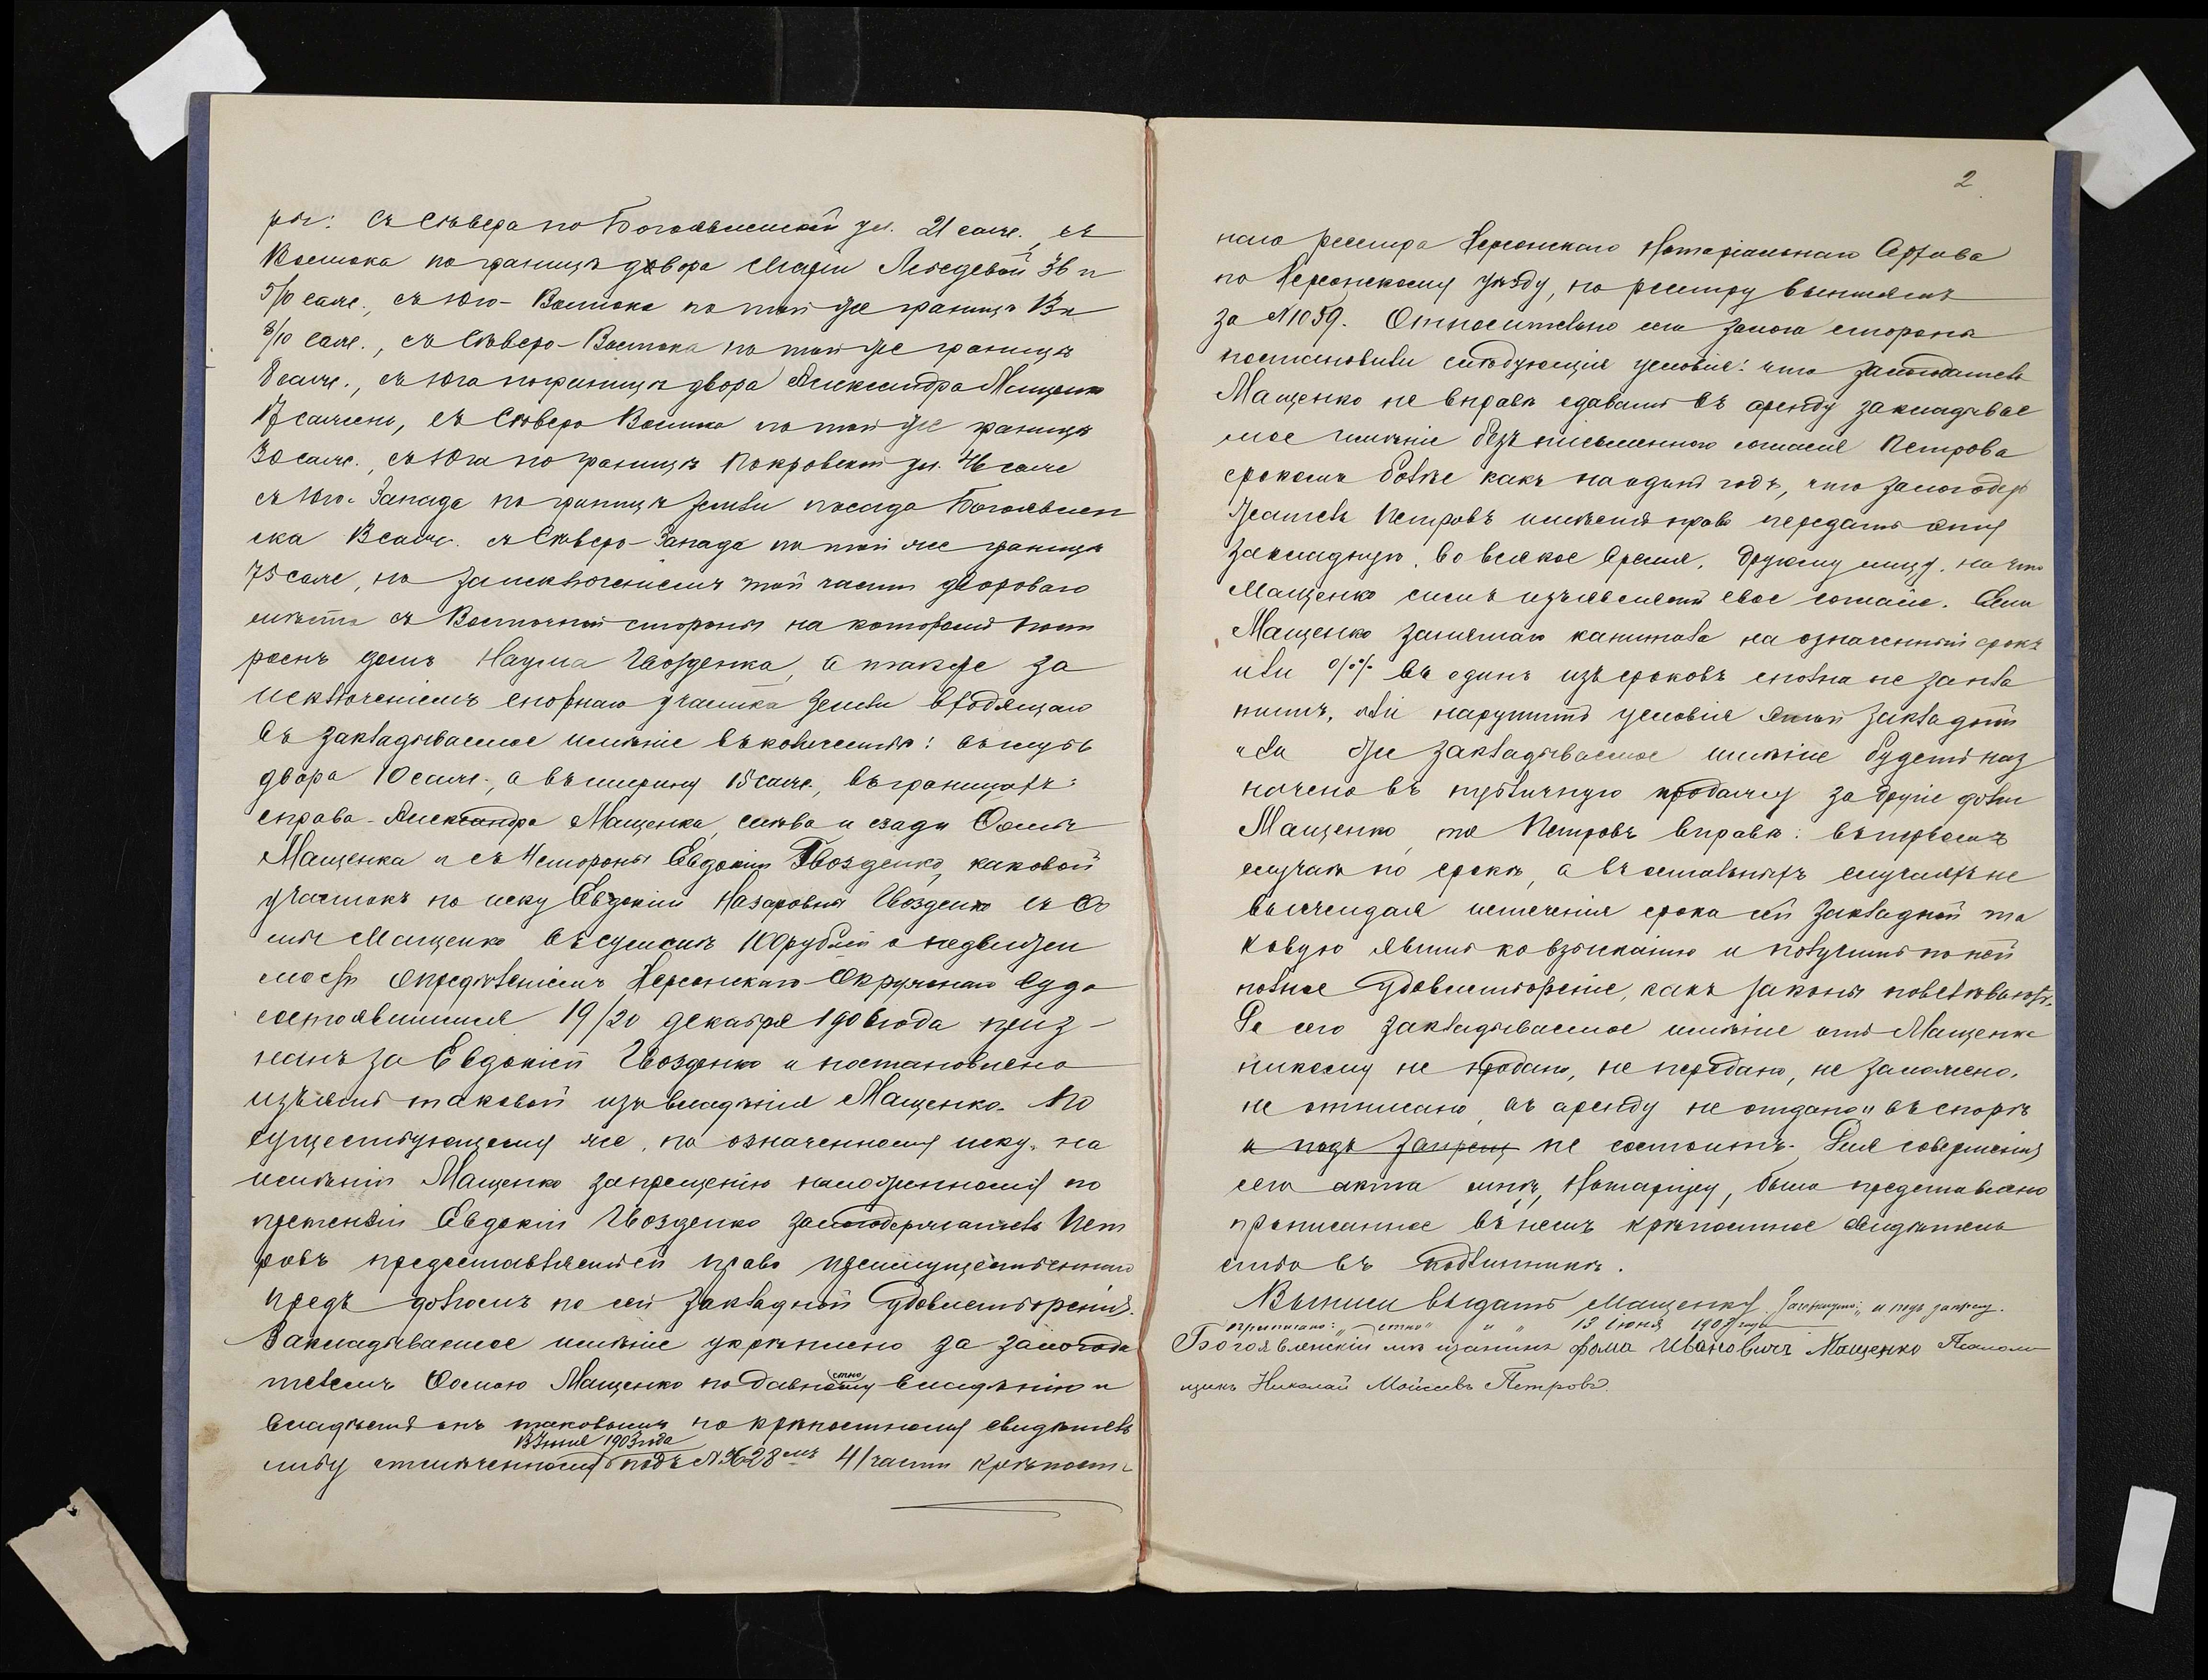 ры: Съ Сѣвера по Богоявленской ул. 21 саж., съ
Востока по границѣ двора Марiи Лебедевой 36 и
5/10 саж., съ Юго-Востока по той же границѣ 13 и
8/10 саж., съ Сѣверо-Востока по той же границѣ
8 саж., съ Юга по границѣ двора Александра Мащенко
17 сажень, съ Сѣверо Востока по той же границѣ
30 саж., съ Юга по границѣ Покровской ул. 46 саж
съ Юго-Запада по границѣ земли посада Богоявлен
ска 13 саж. съ Сѣверо-Запада по той же границѣ
75 саж, но за исключенiемъ той части двороваго
мѣста съ Восточной стороны на которомъ пост
роенъ домъ Наума Гвозденка, а также за
исключенiемъ спорнаго участка земли входящаго
въ закладываемое имѣнiе въ количествѣ: въ глубь
двора 10 саж., а въ ширину 15 саж., въ границахъ:
справа - Александра Мащенка, слѣва и сзади Ѳомы
Мащенка и съ 4 стороны Евдокiи Гвозденко, каковой
участокъ по иску Евдокiи Назаровны Гвозденко съ Ѳо
мы Мащенко въ суммѣ 100 рублей о недвижи
мости опредѣленiемъ Херсонскаго Окружнаго Суда
состоявшимся 19/20 декабря 1906 года приз-
нанъ за Евдокiей Гвозденко и постановлено
изъять таковой изъ владѣнiя Мащенко. По
существующему же, по означенному иску, на
имѣнiи Мащенко запрещенiю наложенному по
претензiи Евдокiи Гвозденко залогодержатель Пет
ровъ предоставляетъ ей право преимущественнаго
предъ долгомъ по сей закладной удовлетворенiя.
Закладываемое имѣнiе укрѣплено за залогода
телемъ Ѳомою Мащенко по давностному владѣнiю и
владѣетъ онъ таковымъ по крѣпостному свидѣтель
ству отмѣченному 13 Iюня 1903 года подъ № 28мъ 41 части крѣпост-
2
наго реестра Херсонскаго Нотарiальнаго Архива
по Херсонскому уѣзду, по реестру
за № 1059. Относительно сего залога стороны
постановили слѣдующiя условiя: что залогодатель
Мащенко не вправѣ сдавать въ аренду закладывае
мое имѣнiе безъ письменнаго согласiя Петрова
срокомъ болѣе какъ на одинъ годъ, что залогодер
жатель Петровъ имѣетъ право передать эту
закладную, во всякое время, другому лицу, на что
Мащенко симъ изъявляетъ свое согласiе. Если
Мащенко занятаго капитала на означенный срокъ
или %% въ одинъ изъ сроковъ сполна не запла
титъ, или нарушитъ условiя этой закладной
или же закладываемое имѣнiе будетъ наз
начено въ публичную продажу за другiе долги
Мащенко, то Петровъ вправѣ: въ первомъ
случаѣ по срокѣ, а въ остальныхъ случаяхъ не
выжидая истеченiя срока сей закладной та
ковую явить ко взысканiю и получить по ней
полное удовлетворенiе, какъ законы повелѣваютъ.
До сего закладываемое имѣнiе отъ Мащенка
никому не продано, не передано, не заложено,
не отписано, въ аренду не отдано и въ спорѣ
и подъ запрещ не состоитъ. Для совершенiя
сего акта мнѣ, Нотарiусу, было представлено
прописанное въ немъ крѣпостное свидѣтель
ство въ подлинникѣ.
Выписи выдать Мащенку. Зачеркнуто: „и подъ запрещ.
приписано: „стно" „и" 13 iюня 1907 года
Богоявленскiй мѣщанинъ Фома Ивановичъ Мащенко
Николай Мойсеевъ Петровъ.